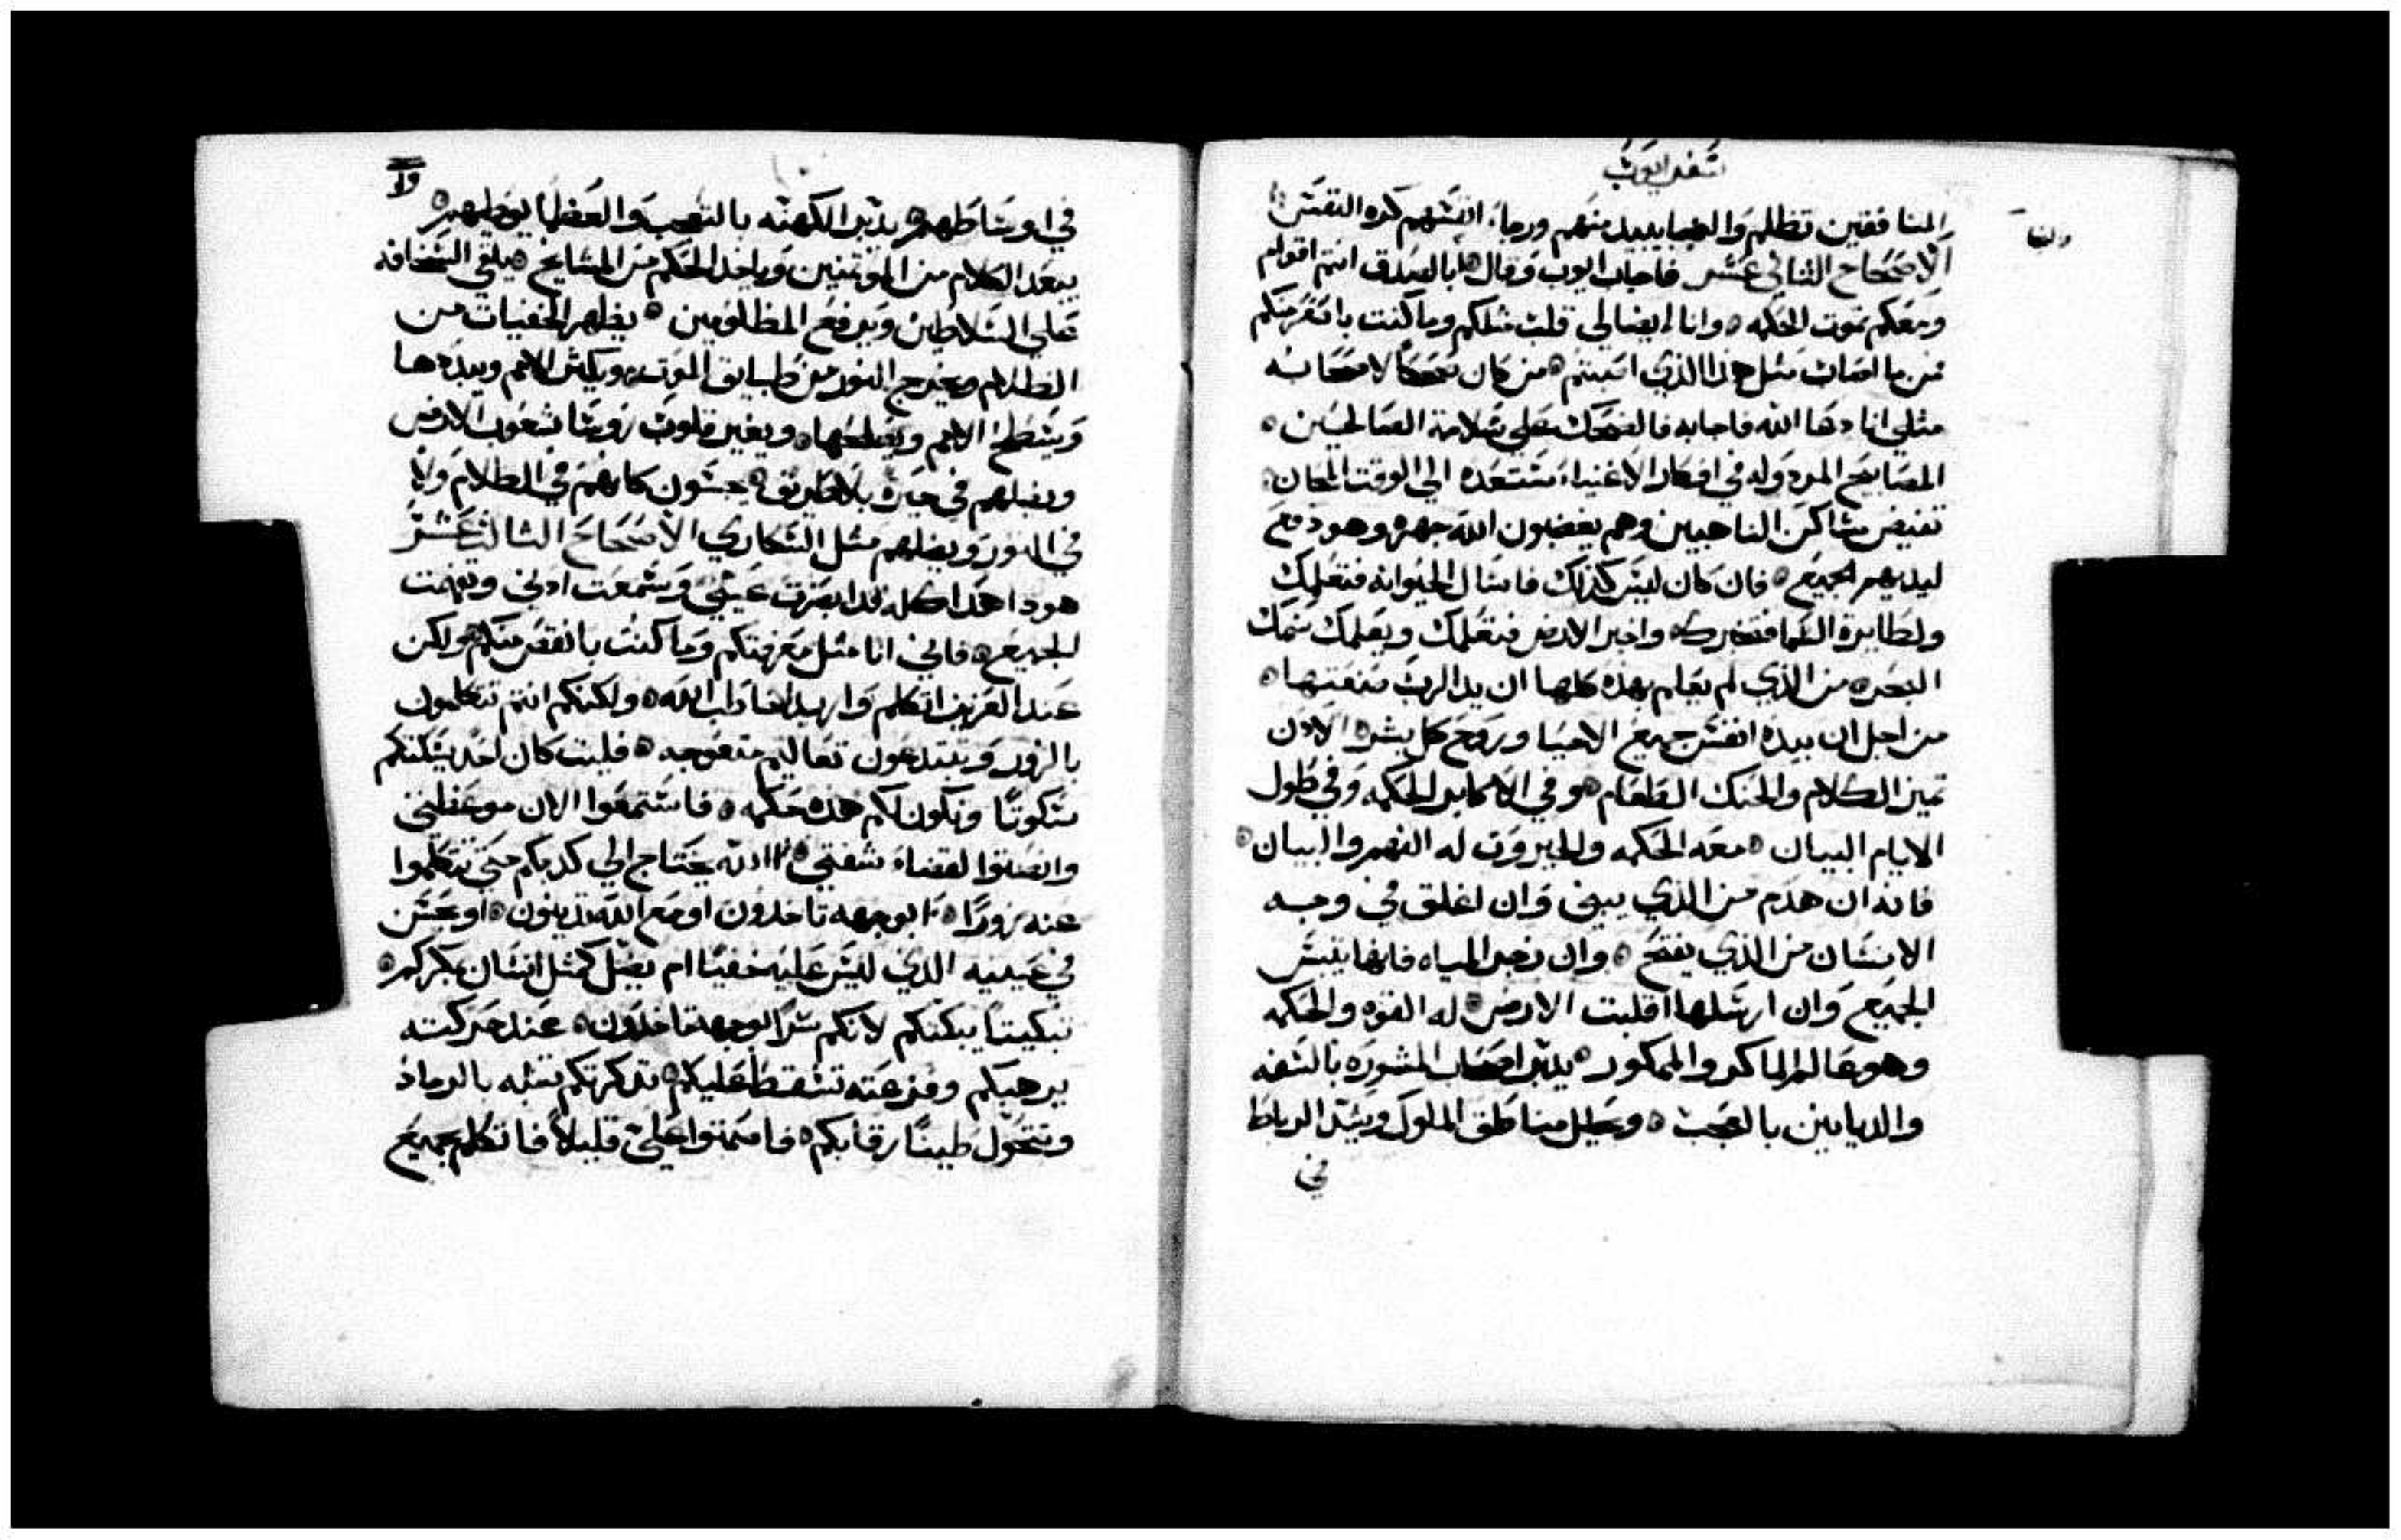 سفر ايوب
المنافقين تظلم والمنجا يبيد منهم ورجاء انفسهم كره النفس
والنجا
الاصحاح الثاني عشر فاجاب ايوب وقال ابالصدق انتم اقوام
ومعكم تموت الحكمه وانا ايضا لي قلب مثلكم وما كنت بانقر منكم
من ما اصاب مثل هذا الذي اصبتم من كان ضحكا لاصحابه
مثلي انا دعا الله فاجابه فالضحك علي سلامة الصالحين
المصابيح المرد وله في افكار الاغنياء مستعده الي الوقت المكان
تفيض مساكن الناهبين وهم يغضبون الله جهره وهو دفع
ليديهم الجميع فان كان ليس كذلك فاسال الحيوانه فتعلمك
ولطايرة السما فتخبرك واخبر الارض فتعلمك ويعلمك سمك
البحر من الذي لم يعلم بهذه كلها ان يد الرب صنعتها
من اجل ان بيده انفس جميع الاحيا وروح كل بشر الاذن
تميز الكلام والحنك الطعام وفي الاكابر الحكمه وفي طول
الايام البيان معه الحكمه والجبروت له الفهم والبيان
فانه ان هدم من الذي يبني وان اغلق في وجه
الانسان من الذي يفتح وان زجر المياه فانها ييبس
الجميع وان ارسلها اقلبت الارض له القوه والحكمه
وهو عالم الماكر والممكور يدبر اصحاب المشوره بالسفه
والديانين بالعجب وحلل مناطق الملوك ويشد الرباط
في
في اوساطهم يدبر الكهنه بالتعجب والعظما يوطيهم
يبعد الكلام من المؤتمنين وياخد الحكم من المشايخ يلقي السخافه
علي السلاطين ويرفع المظلومين يظهر الخفيات من
الظلام ويخرج النور من طبايق الموت ويكثر الامم ويبدها
ويسطح الامم ويقطعها ويغير قلوب روسا شعوب الارض
ويضلهم في حيرة بلا طريق يجسون كانهم في الظلام ولا
في النور ويضلهم مثل السكاري الاصحاح الثالث عشر
هودا هدا كله قد ابصرت عيني وسمعت ادني وتفهمت
الجميع فاني انا مثل معرفتكم وما كنت بانقص منكم ولكن
عند العزيز اتكلم واريد اخاطب الله ولكنكم انتم تتكلمون
بالزور وتبتدعون تعاليم متعوجه فليت كان احد يسكتكم
سكوتا وتكون لكم هذه حكمه فاستمعوا الان موعظتي
وانصتوا لقضاء شفتي االله يحتاج الي كدبكم حتي تتكلموا
عنه زورا ابوجهه تاخدون او مع الله تدينون او يحسن
في عينيه الذي ليس عليه خفيا ام يضل كمثل انسان بمكركم
تبكيتا يبكتكم لانكم سرا لوجهه تاخدون عند حركته
يرهبكم وفزعته تسقط عليكم تدكرتكم تشبه بالرماد
وتتحول طينا رقابكم فاصمتوا علي قليلا فاتكلم جميع